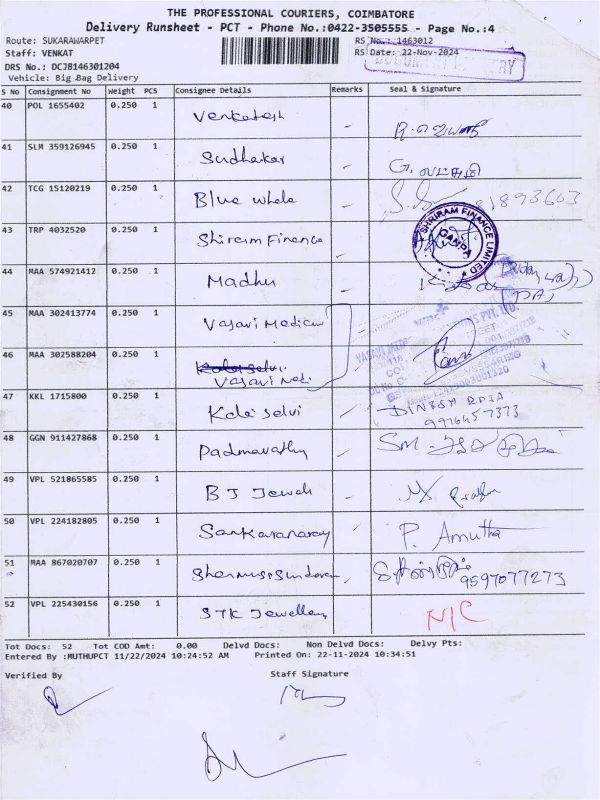 THE PROFESSIONAL COURIERS, COIMBATORE
Delivery Runsheet - PCT - Phone No.:0422-3505555 - Page No.:4
Route: SUKARAWARPET RS No.: 1463012
Staff: VENKAT RS Date: 22-Nov-2024
DRS No.: DCJB146301204
Vehicle: Big Bag Delivery
S No Consignment No Weight PCS Consignee Details Remarks Seal & Signature
40 POL 1655402 0.250 1 Venkatesh
41 SLM 359126945 0.250 1 Sudhakar
42 TCG 15120219 0.250 1 Blue whale
43 TRP 4032520 0.250 1 Shriram Finance SHRIRAM FINANCE LIMITED
44 MAA 574921412 0.250 1 Madhu
45 MAA 302413774 0.250 1 Vasavi Medical
46 MAA 302588204 0.250 1 Kalaiselvi
Vasavi Medi
47 KKL 1715800 0.250 1 Kalaiselvi DINESH RAJA
9976457373
48 GGN 911427868 0.250 1 Padmavathy
49 VPL 521865585 0.250 1 B J Jewels
50 VPL 224182805 0.250 1 Sankaranaray P. Amutha
51 MAA 867020707 0.250 1 9597077273
52 VPL 225430156 0.250 1 STK Jewellery N/C
Tot Docs: 52 Tot COD Amt: 0.00 Delvd Docs: Non Delvd Docs: Delvy Pts:
Entered By :MUTHUPCT 11/22/2024 10:24:52 AM Printed On: 22-11-2024 10:34:51
Verified By Staff Signature